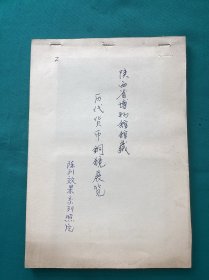 陕西省博物馆馆藏
历代货币铜镜展览
陈列效果系列照片
2